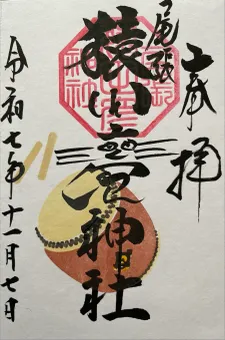 奉拝
尾張
猿田彦神社
令和七年十一月七日